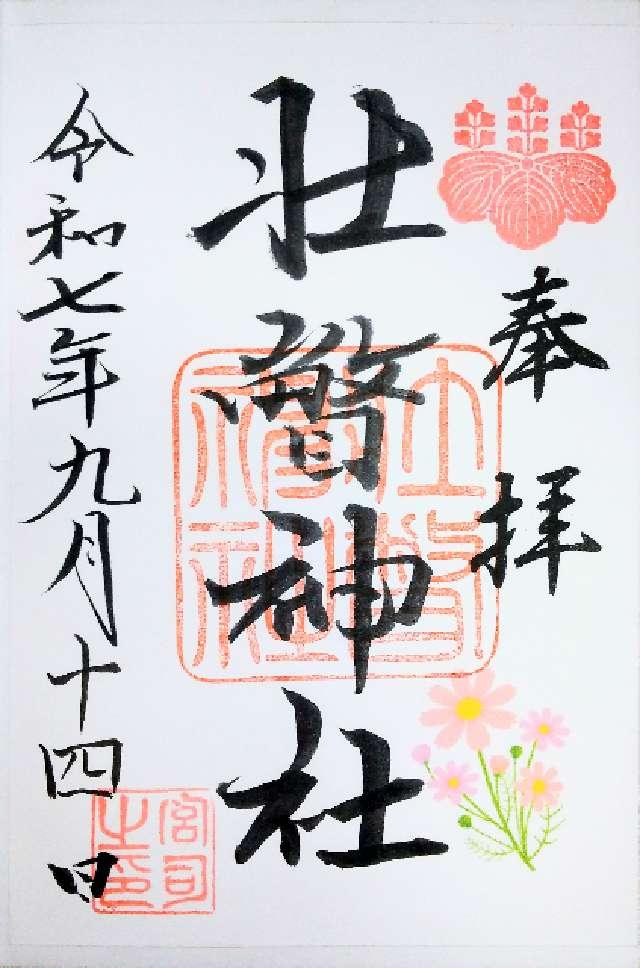 奉拝
壮瞥神社
令和七年九月十四日
宮司之印